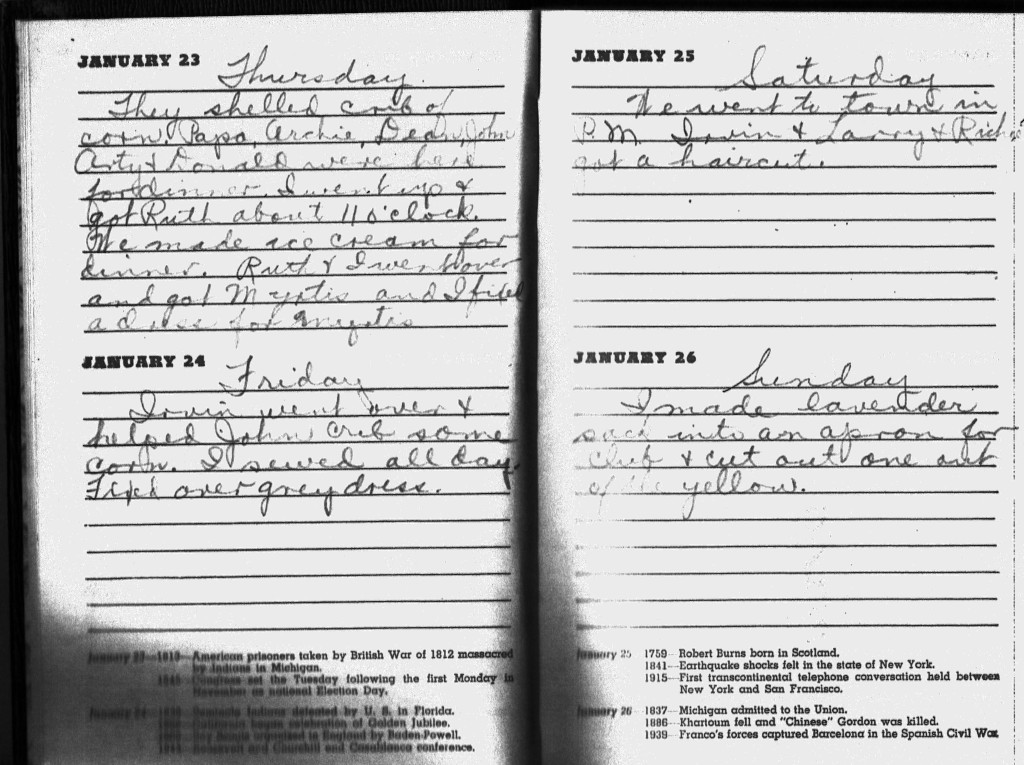 JANUARY 23
Thursday.
They shelled crib of
corn. Papa, Archie, Dean, John
Arty & Donald were here
for dinner. I went up &
got Ruth about 11 o'clock.
We made ice cream for
dinner. Ruth & I went over
and got Myrtis and I fixed
a dress for Myrtis
JANUARY 24
Friday
Irvin went over &
helped John crib some
corn. I sewed all day.
Fixed over grey dress.
January 23—1813—American prisoners taken by British War of 1812 massacred
by Indians in Michigan.
1845—Congress set the Tuesday following the first Monday in
November as national Election Day.
January 24
Seminole Indians defeated by U. S. in Florida.
celebration of Golden Jubilee.
Boy Scouts organized in England by Baden-Powell.
Roosevelt and Churchill end Casablanca conference.
JANUARY 25
Saturday
We went to town in
P.M. Irvin & Larry & Richie
got a haircut.
JANUARY 26
Sunday
I made lavender
sack into an apron for
club & cut out one out
of the yellow.
January 25 1759—Robert Burns born in Scotland.
1841—Earthquake shocks felt in the state of New York.
1915—First transcontinental telephone conversation held between
New York and San Francisco.
January 26 1837—Michigan admitted to the Union.
1886—Khartoum fell and "Chinese" Gordon was killed.
1939—Franco's forces captured Barcelona in the Spanish Civil War.